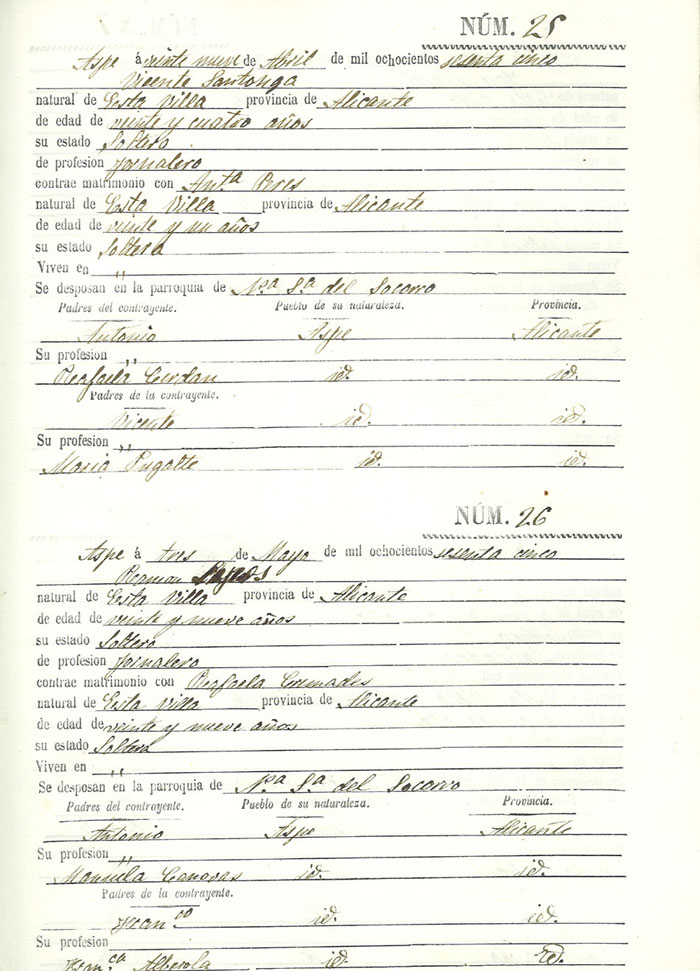 NÚM. 25
Aspe á veinte nueve de Abril de mil ochocientos sesenta cinco
Vicente Santonga
natural de Esta Villa provincia de Alicante
de edad de veinte y cuatro años
su estado Soltero
de profesion Jornalero
contrae matrimonio con Ant.ª Peres
natural de Esta Villa provincia de Alicante
de edad de veinte y un años
su estado Soltera
Viven en ,,
Se desposan en la parroquia de N.ª S.ª del Socorro
Padres del contrayente. Pueblo de su naturaleza. Provincia.
Antonio Aspe Alicante
Su profesion ,,
Reafaela Cerdan id. id.
Padres de la contrayente.
Vicente id. id.
Su profesion ,,
Maria Pugalte id. id.
NÚM. 26
Aspe á tres de Mayo de mil ochocientos sesenta cinco
Ramon
natural de Esta Villa provincia de Alicante
de edad de veinte y nueve años
su estado Soltero
de profesion Jornalero
contrae matrimonio con Reafaela Cremades
natural de Esta villa provincia de Alicante
de edad de veinte y nueve años
su estado Soltera
Viven en ,,
Se desposan en la parroquia de N.ª S.ª del Socorro
Padres del contrayente. Pueblo de su naturaleza. Provincia.
Antonio Aspe Alicante
Su profesion ,,
Manuela Canovas id. id.
Padres de la contrayente.
Fran.co id. id.
Su profesion
Fran.ca Alberola id. id.